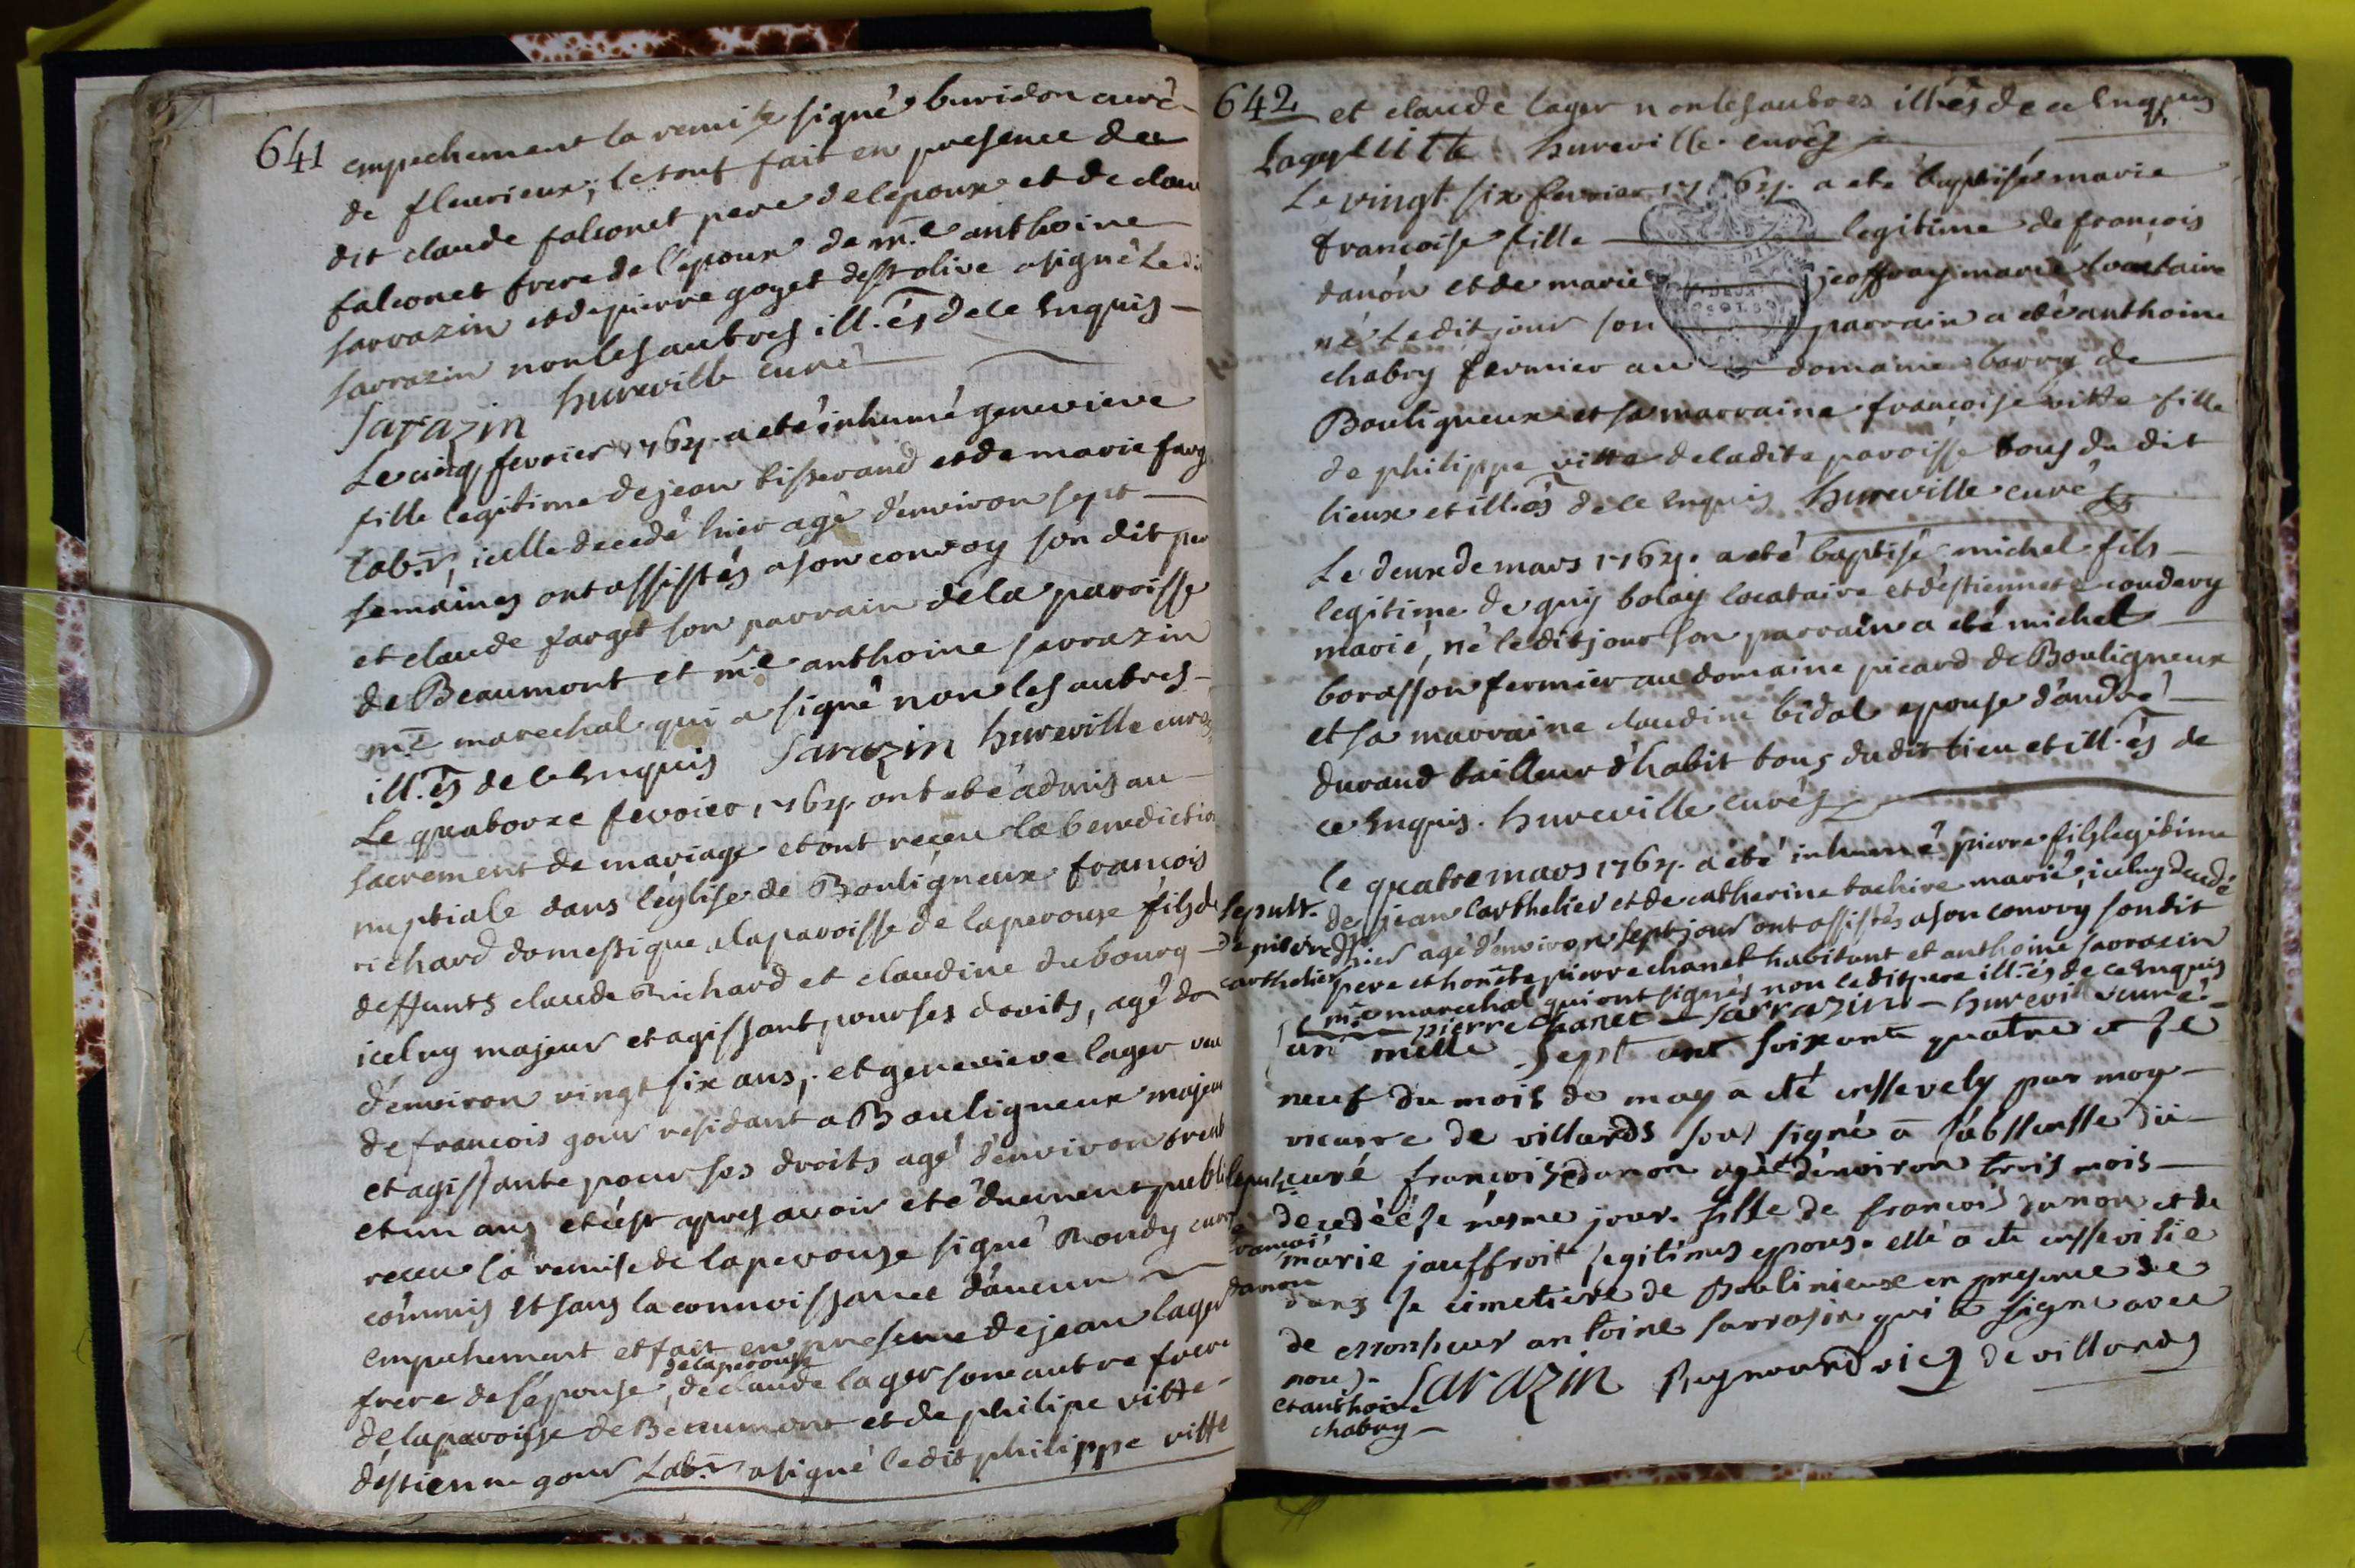 641
empechement la remise signé buridon curé
de fleurieux; le tout fait en presence de
dit claude falconet pere de lepoux et de clau
falconet frere de l'epoux de m.e anthoine
sarrazin et de pierre goyet de st olive a signé le di
sarrazin non les autres ill.és de ce enquis
Sarazin hureville curé
Le cinq fevrier 1764. a eté inhumé genevieve
fille legitime de jean tisserand et de marie farg
Lab.r, icelle decedé hier agé d'environ sept
semaines ont assistés a son convoy son dit per
et claude farget son parrain de la paroisse
de Beaumont et m.e anthoine sarrazin
m.e marechal qui a signé non les autres
ill.és de ce Enquis Sarazin hureville curé
Le quatorze fevrier 1764. ont eté admis au
sacrement de mariage et ont reçeu la benedictio
nuptiale dans l'église de Bouligneux francois
richard domestique de la paroisse de laperouse fils de
deffunts claude Richard et claudine dubourg
iceluy majeur et agissant pour ses droits, agé de
d'environ vingt six ans; et genevieve lager veu
de francois gour residant a Bouligneux majeu
et agissante pour ses droits agé d'environ trent
et un ans et c'est apres avoir eté duement publi
receu la remise de laperouse signé Rondy curé
commis et sans la connoissance d'aucun
empechement et fait en presence de jean lager
de laperouse
frere de l'epouse, de claude lager son autre frere
de la paroisse de Beaumont et de philipe vitte
d'estienne gour Lab.r a signé le dit philippe vitte
642
et claude lager non les autres illiés de ce Enquis
hureville curés
Le vingt six fevrier 1764. a eté baptisée marie
francoise fille legitime de françois
danon et de marie jeoffray marié locataire
né le dit jour son parrain a eté anthoine
chabry fermier au domaine barry de
Bouligneux et sa marraine françoise vitte fille
de philippe vitte de la dite paroisse tous du dit
lieux et ill.és de ce Enquis hureville curé
Le deux de mars 1764. a eté baptisé michel fils
legitime de guy bolay locataire et d'estiennete coudery
marié, né le dit jour son parrain a eté michel
borasson fermier au domaine picard de Bouligneux
et sa marraine claudine bidal epouse d'andré
durand tailleur d'habit tous du dit lieu et ill.és de
ce Enquis. hureville curés
le quatre mars 1764. a eté inhumé pierre fils legitime
de jean carthelier et de catherine tachire marié, iceluy decedé
hier agé d'environ sept jour ont assistés a son convoy son dit
pere et honête pierre chanel habitant et anthoine sarrazin
m.e marechal qui ont signés non le dit pere ill.és de ce Enquis
sepult.
de pierre
carthelier
pierre chanel sarrazin hureville curé
L'an mille sept cent soixante quatre et le
neuf du mois de may a eté ensevely par moy
vicaire de villards sous signé a l'abssensse du
curé françoise danon agée d'environ trois mois
decedéé le mesme jour. fille de francois danon et de
marie jauffroit legitimes epous. elle a eté enssevelie
dans le cimetiere de Boulinieux en presence de
de monsieur antoine sarrasin qui a signé avec
nous.
sepult.
danon
et anthoine
chabry
Sarazin Reynaurd vic. de villards